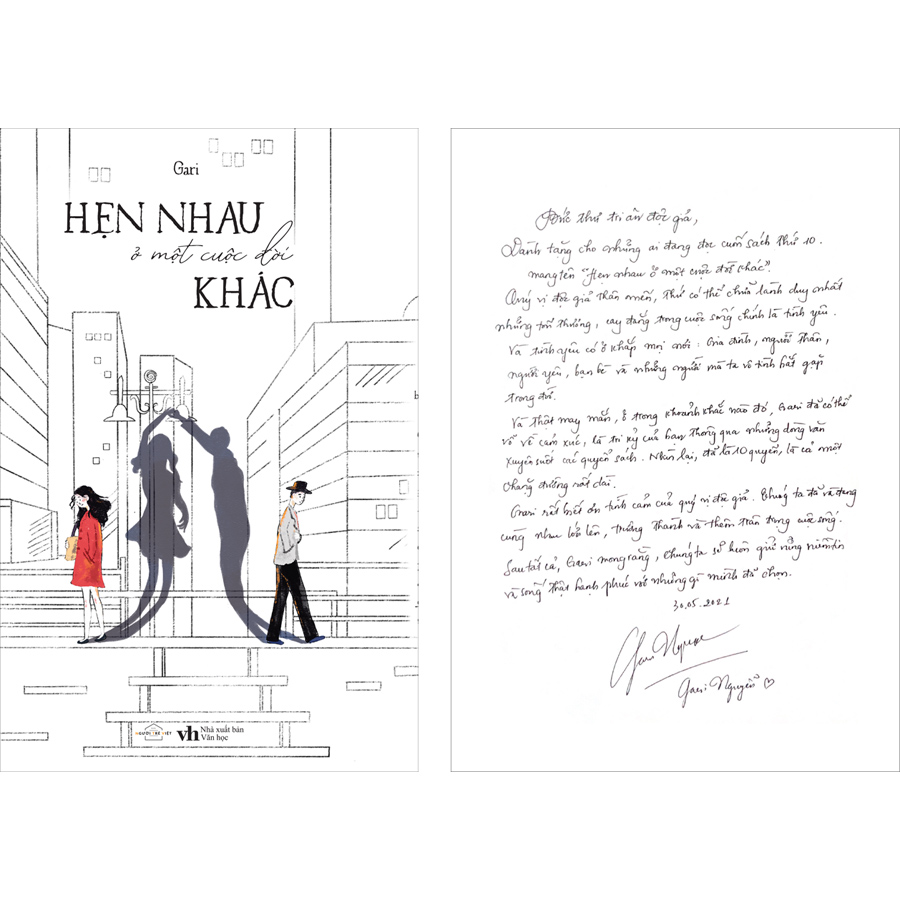 Gari
HẸN NHAU
ở một cuộc đời
KHÁC
NGƯỜI TRẺ VIỆT
vh Nhà xuất bản
Văn học
Bức thư tri ân độc giả,
Dành tặng cho những ai đang đọc cuốn sách thứ 10.
mang tên "Hẹn nhau ở một cuộc đời khác".
Quý vị độc giả thân mến, thứ có thể chữa lành duy nhất
những tổn thương, cay đắng trong cuộc sống chính là tình yêu.
Và tình yêu có ở khắp mọi nơi: Gia đình, người thân,
người yêu, bạn bè và những người mà ta vô tình bắt gặp
trong đời.
Và thật may mắn, ở trong khoảnh khắc nào đó, Gari đã có thể
vỗ về cảm xúc, là tri kỷ của bạn thông qua những dòng văn
xuyên suốt các quyển sách. Nhìn lại, đã là 10 quyển, là cả một
chặng đường rất dài.
Gari rất biết ơn tình cảm của quý vị độc giả. Chúng ta đã và đang
cùng nhau lớn lên, trưởng thành và thêm trân trọng cuộc sống.
Sau tất cả, Gari mong rằng, chúng ta sẽ luôn giữ vững niềm tin
và sống thật hạnh phúc với những gì mình đã chọn.
30.05.2021
Gari Nguyễn
Gari Nguyễn ♡